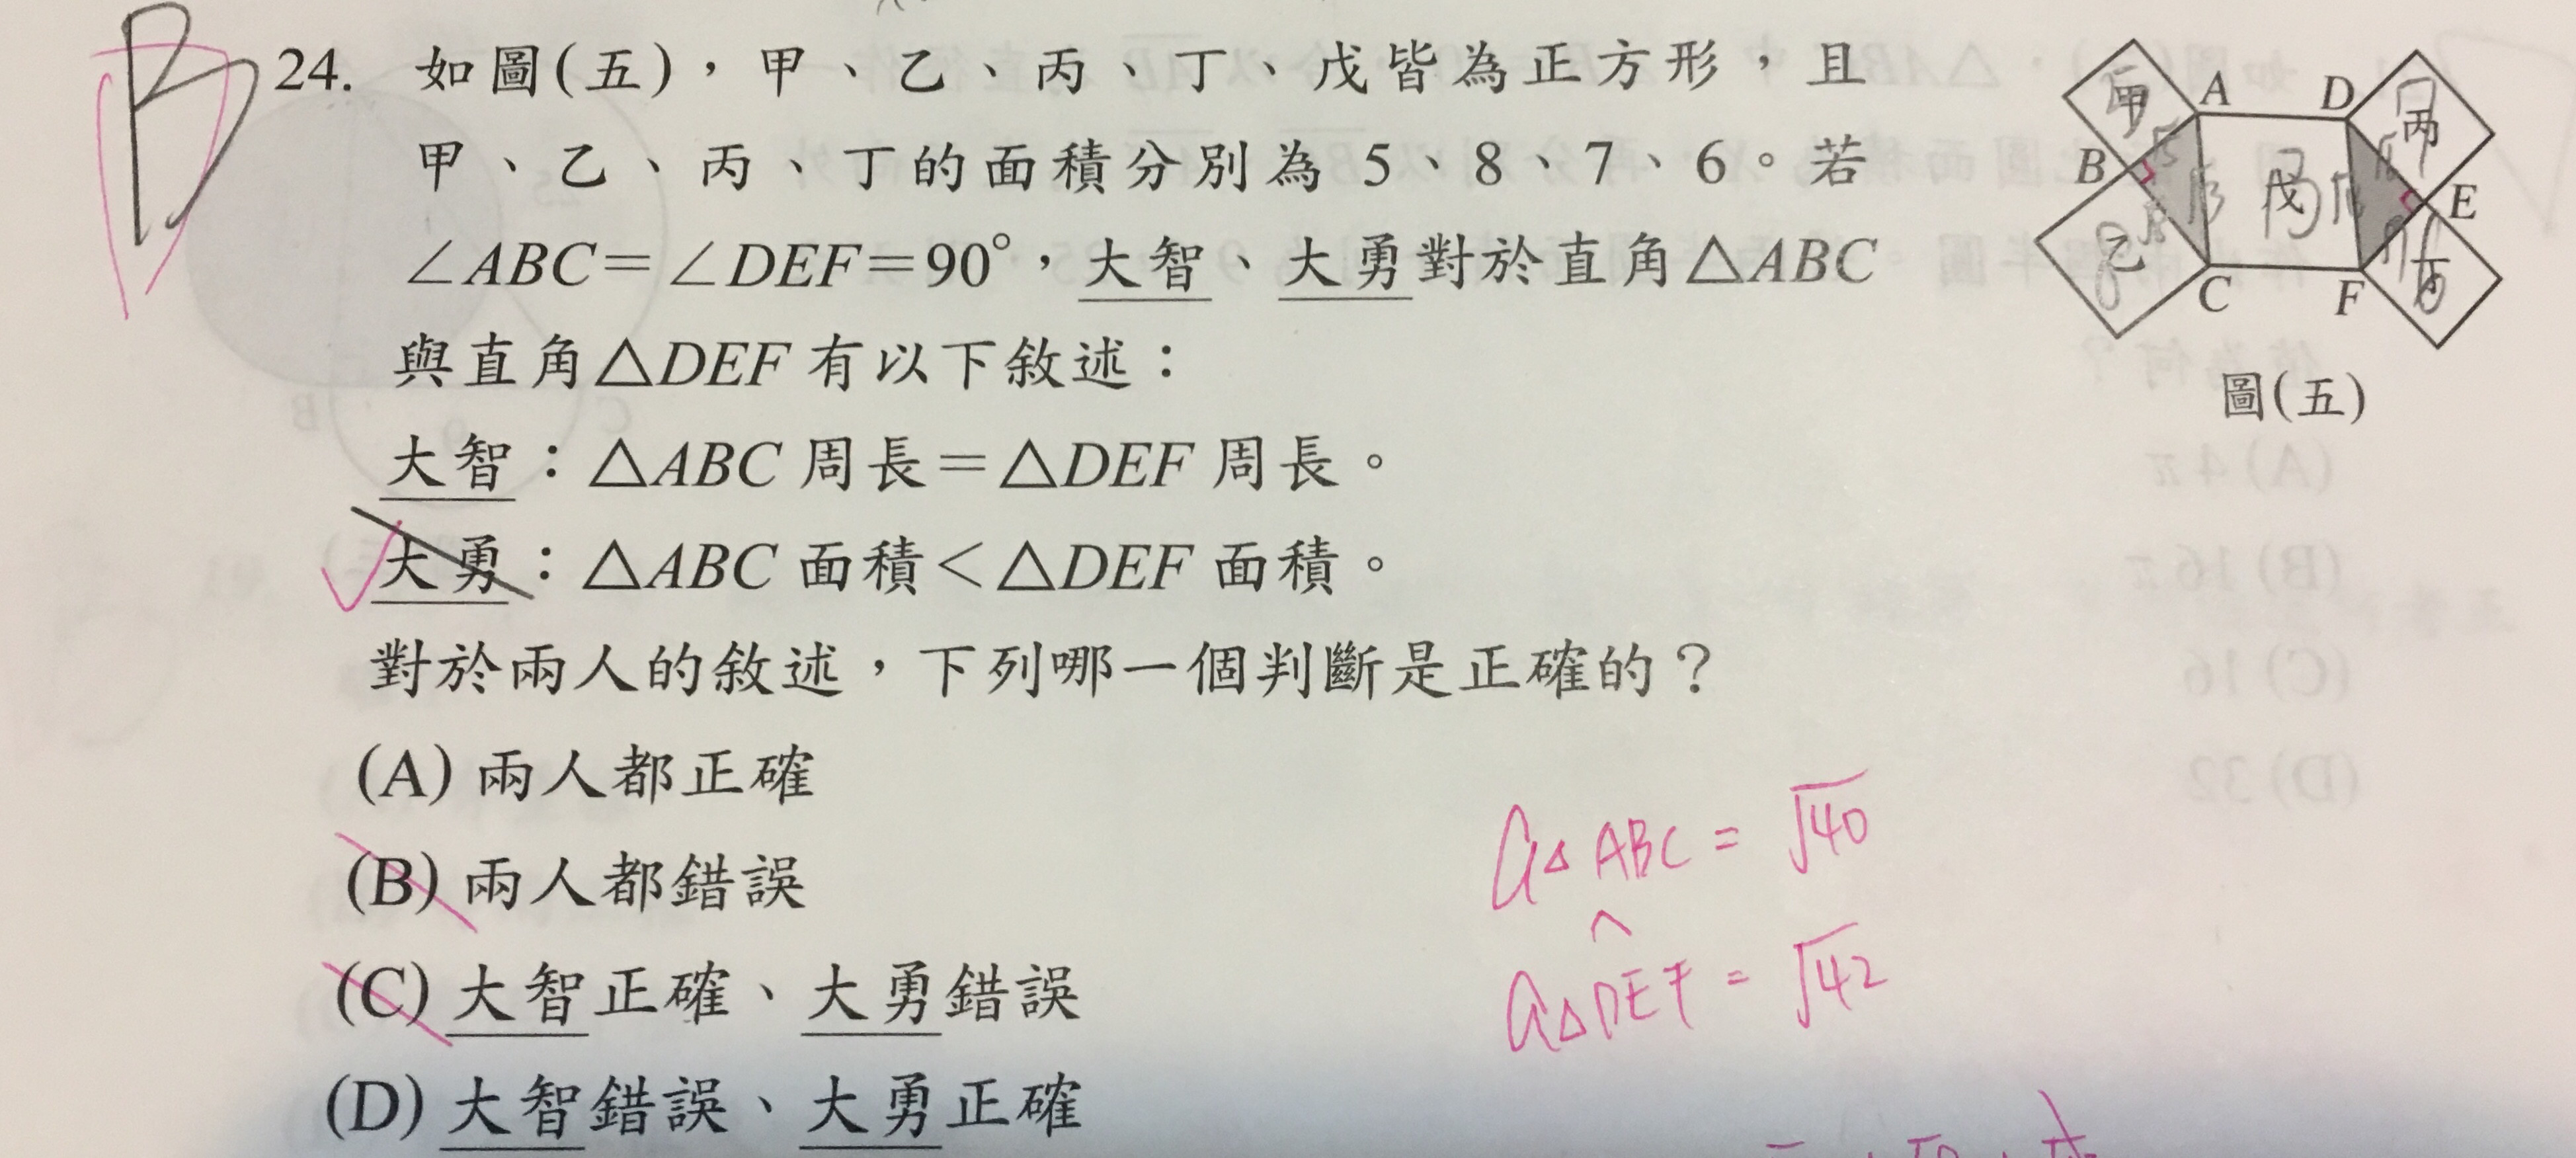 B
24. 如圖(五),甲、乙、丙、丁、戊皆為正方形,且
甲、乙、丙、丁的面積分別為 5、8、7、6。若
∠ABC=∠DEF=90°,大智、大勇對於直角△ABC
與直角△DEF 有以下敘述:
大智:△ABC 周長=△DEF 周長。
大勇:△ABC 面積<△DEF 面積。
對於兩人的敘述,下列哪一個判斷是正確的?
(A) 兩人都正確
(B) 兩人都錯誤
(C) 大智正確、大勇錯誤
(D) 大智錯誤、大勇正確
甲 A D 丙
B 戊 E
乙 C F 丁
圖(五)
a△ABC = √40
^
a△DEF = √42